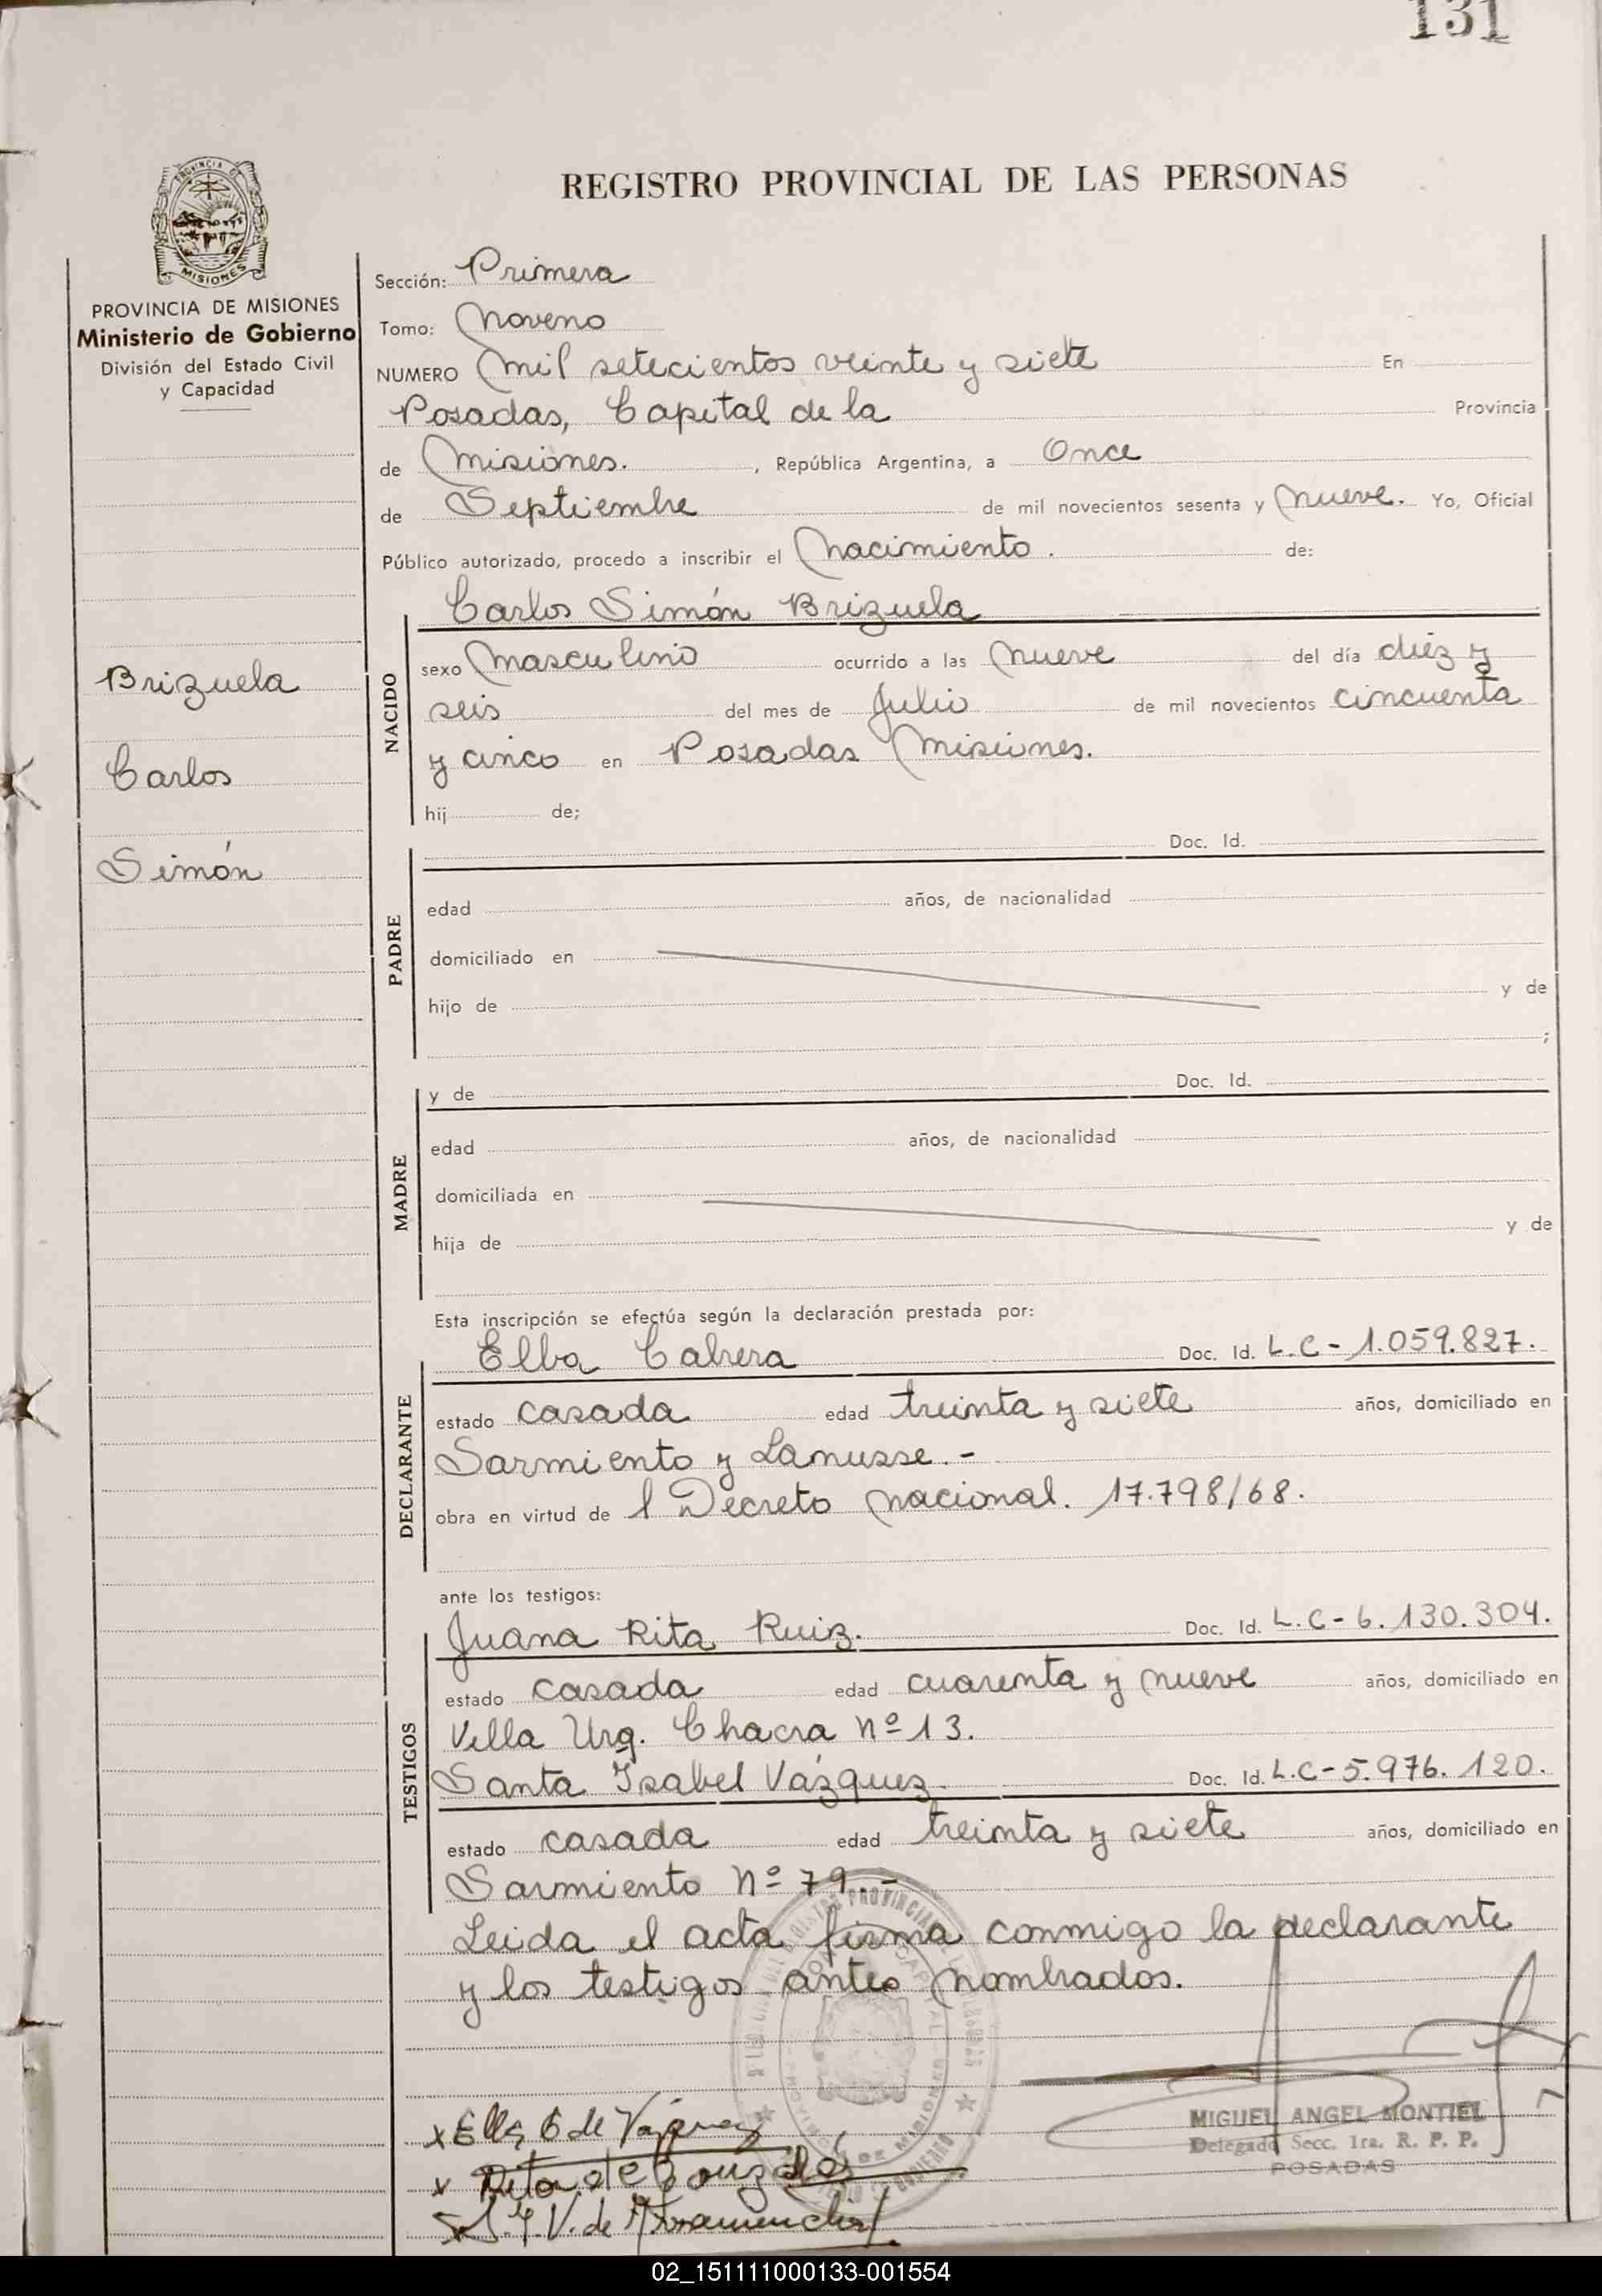 131
REGISTRO PROVINCIAL DE LAS PERSONAS
PROVINCIA DE MISIONES
Ministerio de Gobierno
División del Estado Civil
y Capacidad
Brizuela
Carlos
Simón
Sección: Primera
Tomo: Noveno
NUMERO Mil setecientos veinte y siete En
Posadas, Capital de la Provincia
de Misiones. , República Argentina, a Once
de Septiembre de mil novecientos sesenta y Nueve. Yo, Oficial
Público autorizado, procedo a inscribir el Nacimiento. de:
NACIDO
Carlos Simón Brizuela
sexo Masculino ocurrido a las Nueve del día diez y
seis del mes de Julio de mil novecientos cincuenta
y cinco en Posadas Misiones.
hij de;
PADRE
Doc. Id.
edad años, de nacionalidad
domiciliado en
hijo de y de
;
MADRE
y de Doc. Id.
edad años, de nacionalidad
domiciliada en
hija de y de
Esta inscripción se efectúa según la declaración prestada por:
DECLARANTE
Elba Cabrera Doc. Id. L.C- 1.059.827.
estado casada edad treinta y siete años, domiciliado en
Sarmiento y Lanusse.-
obra en virtud de l Decreto Nacional. 17.798/68.
ante los testigos:
TESTIGOS
Juana Rita Ruiz. Doc. Id. L.C- 6.130.304.
estado casada edad cuarenta y nueve años, domiciliado en
Villa Urq. Chacra Nº 13.
Santa Isabel Vázquez. Doc. Id. L.C- 5.976.120.
estado casada edad treinta y siete años, domiciliado en
Sarmiento Nº 79.-
Leida el acta firma conmigo la declarante
y los testigos antes nombrados.
MIGUEL ANGEL MONTIEL
Delegado Secc. 1ra. R. P. P.
POSADAS
x Elba C de Vázquez
x Rita de González
02_151111000133-001554